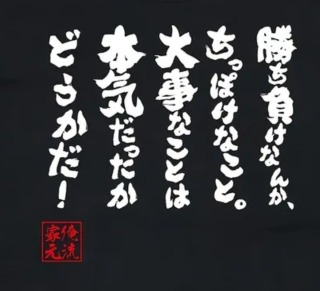 勝ち負けなんか、
ちっぽけなこと。
大事なことは
本気だったか
どうかだ!
俺流
家元